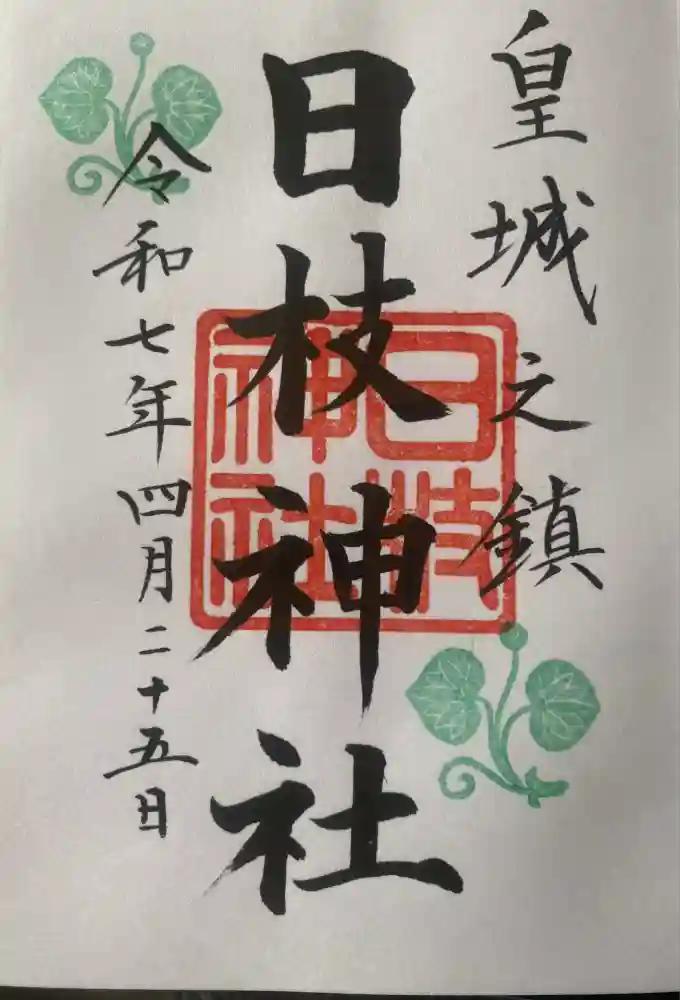 皇城之鎮
日枝神社
日枝
神社
令和七年四月二十五日